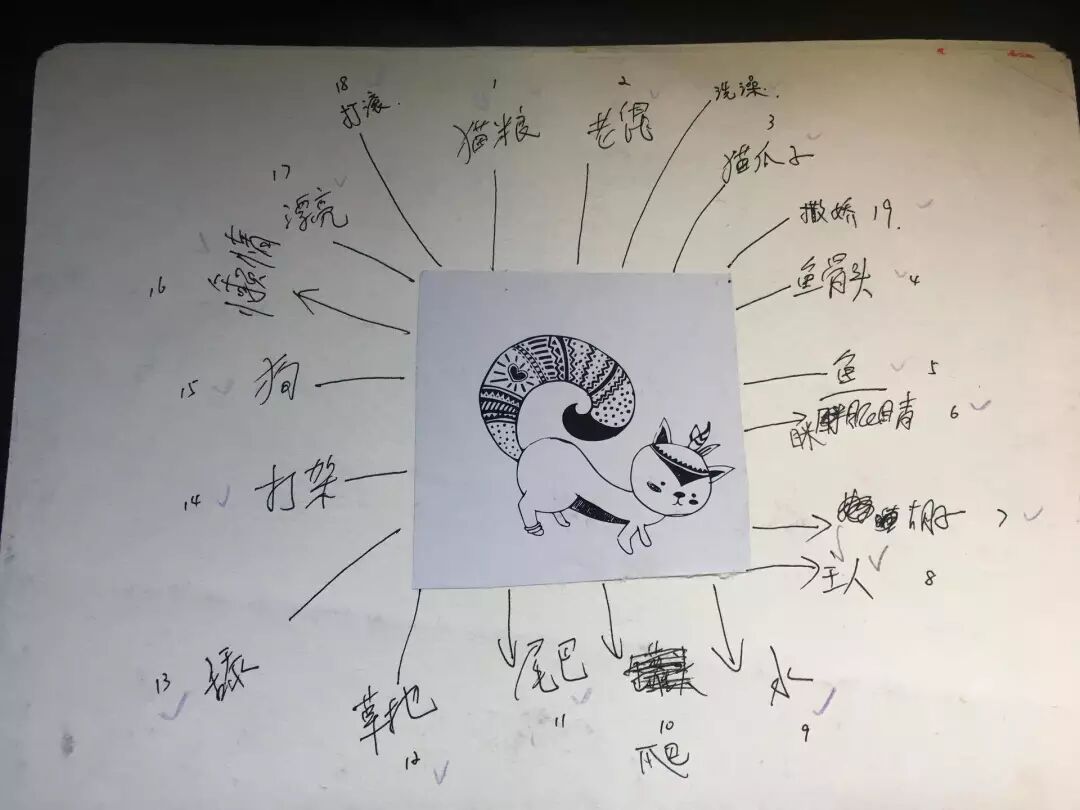 18
打滚.
1
猫粮
2
老鼠
洗澡.
3
猫爪子
撒娇 19.
鱼骨头 4
鱼 5
眯眼睛 6
胡子 7
主人 8
水
9
10
爬
尾巴
11
草地
12
13 舔
14 打架
15 狗
16 懒惰
17
漂亮